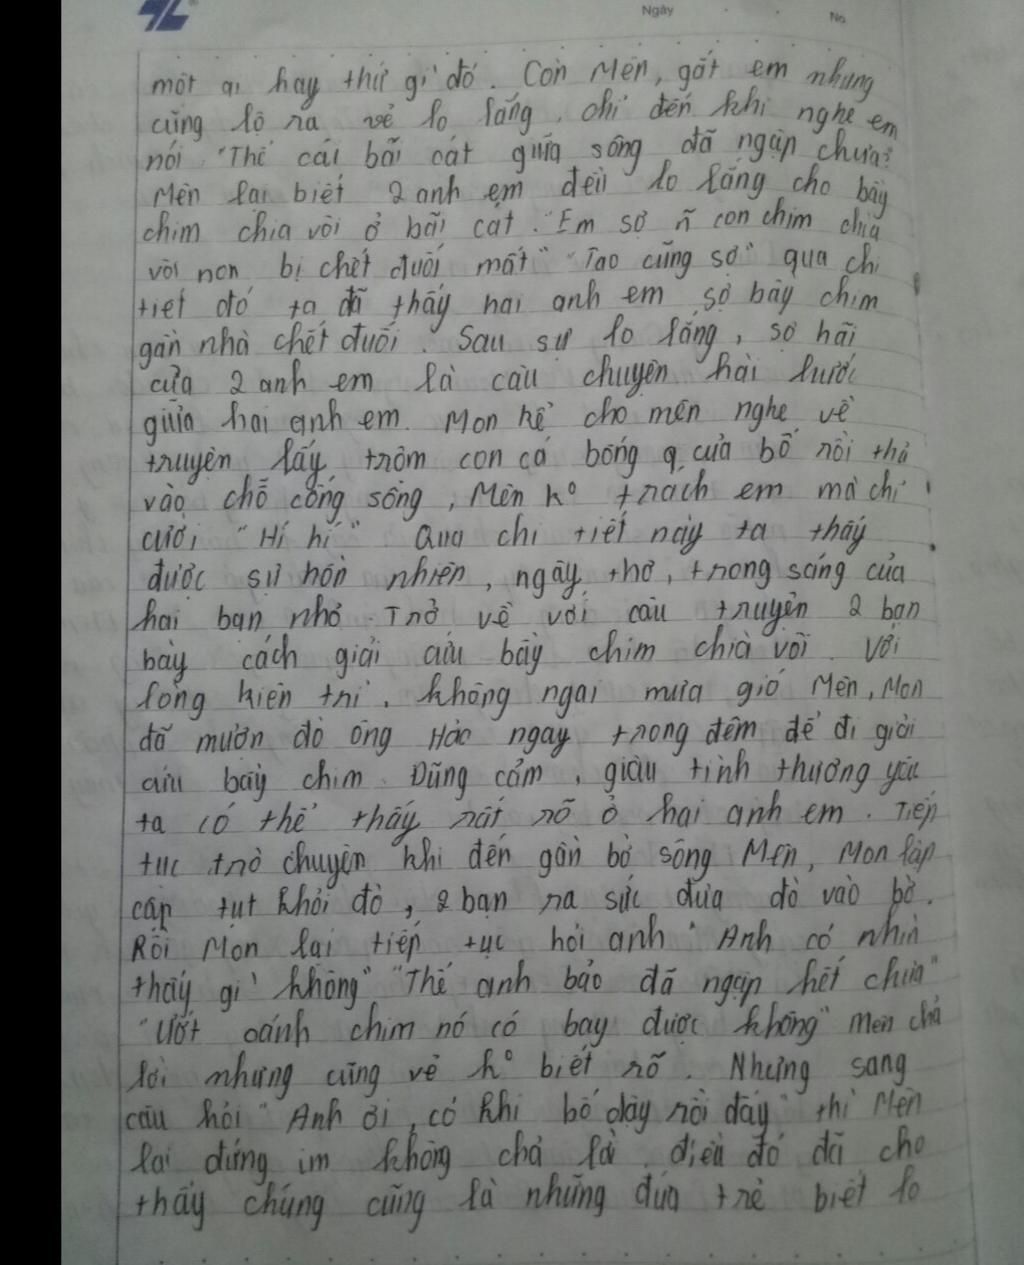 Ngày No
một ai hay thứ gì đó. Còn Mên, gắt em nhưng
cũng lộ ra vẻ lo lắng, chỉ đến khi nghe em
nói "Thế cái bãi cát giữa sông đã ngập chưa?
Mên lại biết 2 anh em đều lo lắng cho bầy
chim chìa vôi ở bãi cát. "Em sợ ~ con chim chìa
vôi non bị chết đuối mất" "Tao cũng sợ" qua chi
tiết đó ta đã thấy hai anh em sợ bầy chim
gần nhà chết đuối. Sau sự lo lắng, sợ hãi
của 2 anh em là câu chuyện hài hước
giữa hai anh em. Mon kể cho mên nghe về
truyện lấy trộm con cá bống q. của bố rồi thả
vào chỗ cống sông, Mên k° trách em mà chỉ
cười "Hí hí" Qua chi tiết này ta thấy
được sự hồn nhiên, ngây thơ, trong sáng của
hai bạn nhỏ. Trở về với câu truyện 2 bạn
bày cách giải cứu bầy chim chìa vôi. Với
lòng kiên trì, không ngại mưa gió Mên, Mon
đã mượn đò ông Hảo ngay trong đêm để đi giải
cứu bầy chim. Dũng cảm, giàu tình thương yêu
ta có thể thấy rất rõ ở hai anh em. Tiếp
tục trò chuyện khi đến gần bờ sông Mên, Mon lập
cập tụt khỏi đò, 2 bạn ra sức đưa đò vào bờ.
Rồi Mon lại tiếp tục hỏi anh "Anh có nhìn
thấy gì không" "Thế anh bảo đã ngập hết chưa"
"Ướt cánh chim nó có bay được không" mên chả
lời nhưng cũng vẻ k° biết rõ. Nhưng sang
câu hỏi "Anh ơi, có khi bố dậy rồi đấy" thì Mên
lại đứng im không chả lời. điều đó đã cho
thấy chúng cũng là những đứa trẻ biết lo